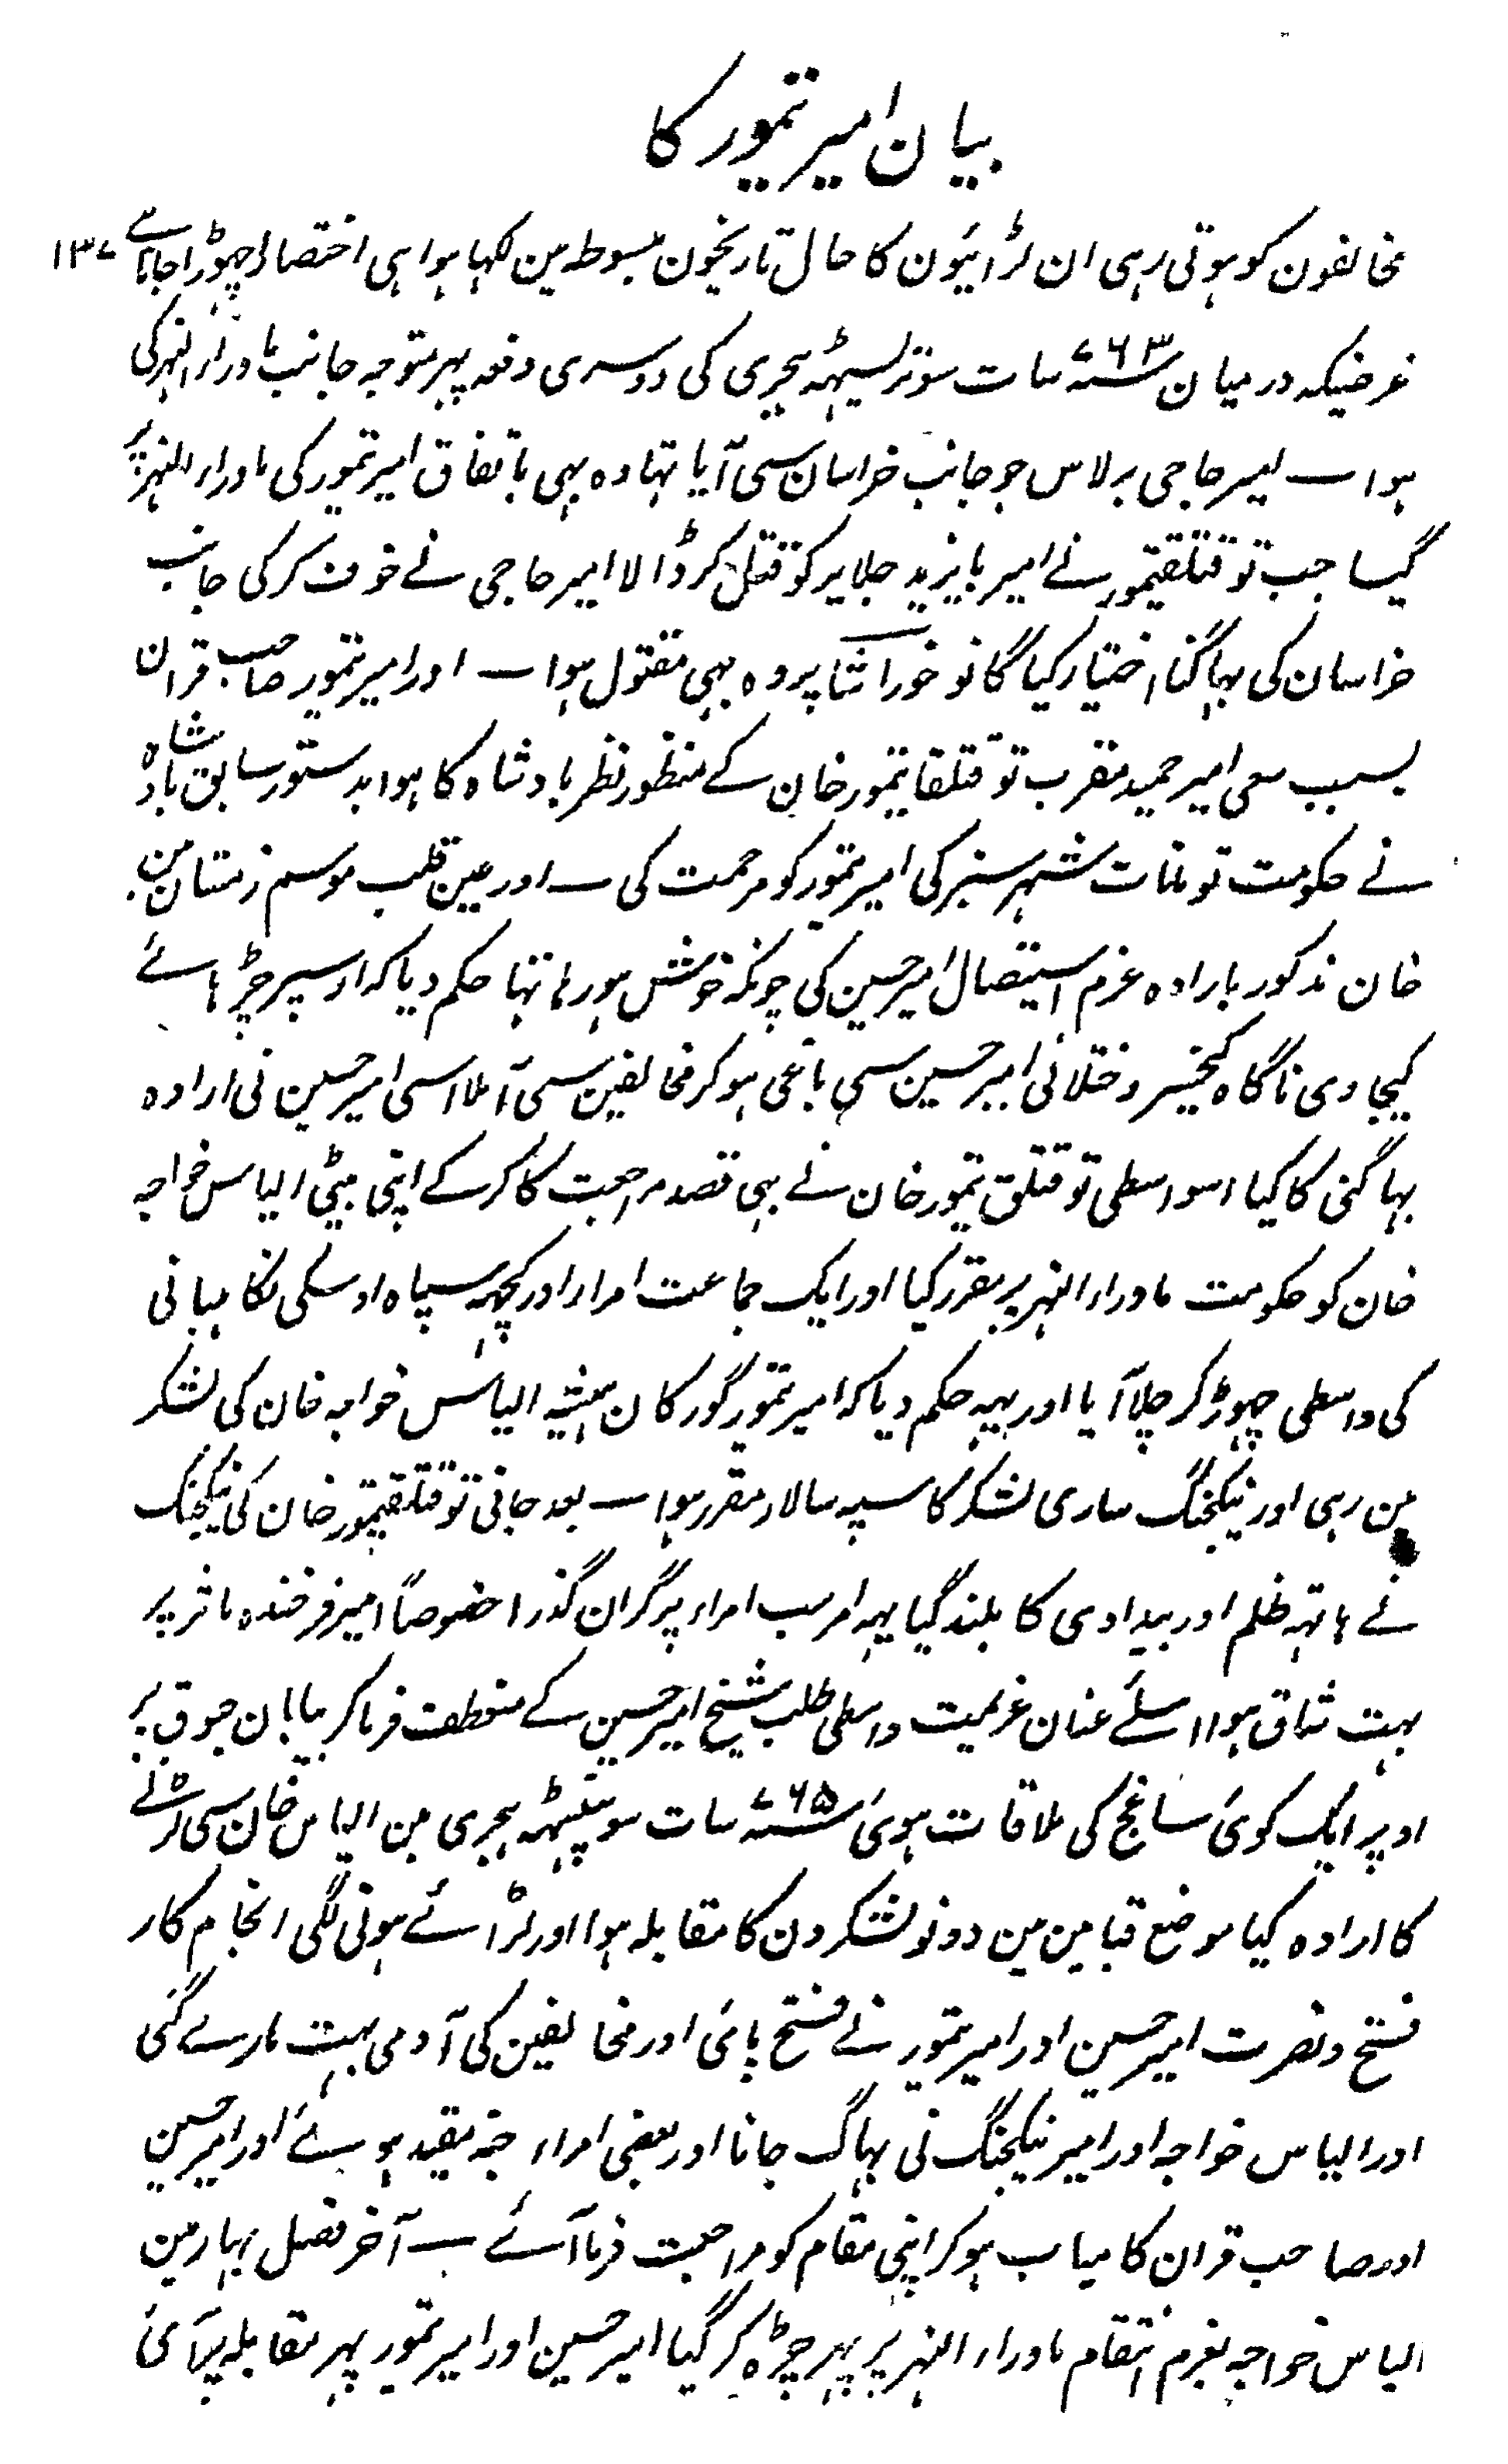 بیان امیر تیمور کا
مخالفون کو ہوتی رہی ان لڑائیون کا حال تاریخون مبسوطہ مین لکہا ہوا ہی اختصاراً چہوڑا جاتا ہے ۱۳۷
غرضیکہ درمیان ۷۶۳؁ سات سو ترسیٹہہ ہجری کی دوسری دفعہ پہر متوجہ جانب ماوراء النہر کی
ہوا ۔ امیر حاجی برلاس جو جانب خراسان سی آیا تہا وہ بہی باتفاق امیر تیمور کی ماوراء النہر پر
گیا جب توقتلقتیمور نے امیر بایزید جلایر کو قتل کر ڈالا امیر حاجی نے خوف کر کی جانب
خراسان کی بہاگنا اختیار کیا گانو خوراشا پر وہ بہی مقتول ہوا ۔ اور امیر تیمور صاحب قران
بسبب سعی امیر حمید مقرب توقتلقا تیمور خان کے منظور نظر بادشاہ کا ہوا بدستور سابق بادشاہ
نے حکومت تومانات شہر سبز کی امیر تیمور کو مرحمت کی ۔ اور عین قلب موسم زمستان مین
خان مذکور بارادہ عزم استیصال امیر حسین کی چونکہ خوش ہو رہا تہا حکم دیا کہ اوسپر چڑہائے
کیجاوی ناگاہ کیخسرو ختلانی امیر حسین سی باغی ہو کر مخالفین سی آملا اسی امیر حسین نی ارادہ
بہاگنی کا کیا اسواسطی توقتلق تیمور خان نے بہی قصد مراجعت کا کر کے اپنی بیٹی الیاس خواجہ
خان کو حکومت ماوراء النہر پر مقرر کیا اور ایک جماعت امراء اور کچہہ سپاہ اوسکی نگاہبانی
کی واسطی چہوڑ کر چلا آیا اور یہہ حکم دیا کہ امیر تیمور گورکان ہمیشہ الیاس خواجہ خان کی لشکر
مین رہی اور نیکجنگ ساری لشکر کا سپہ سالار مقرر ہوا ۔ بعد جانی توقتلقتیمور خان کی نیکجنک
نے ہاتہہ ظلم اور بیدادی کا بلند کیا یہہ امر سب امراء پر گران گذرا خصوصاً امیر فرخندہ ماثر پر
بہت شاق ہوا اسلئے عنان عزیمت واسطی طلب شیخ امیر حسین کے منعطف فرما کر بیابان جوق پر
اوپر ایک کوئ ساغج کی ملاقات ہوئ ۷۶۵؁ سات سو پینسٹہہ ہجری مین الیاس خان سی لڑنے
کا ارادہ کیا موضع قبامین مین دونو لشکرون کا مقابلہ ہوا اور لڑائے ہونی لگی انجام کار
فتح و نصرت امیر حسین اور امیر تیمور نے فتح پائ اور مخالفین کی آدمی بہت مارے گئی
اور الیاس خواجہ اور امیر نیکجنگ نی بہاگ جانا اور بعضی امراء جتہ مقید ہوئے اور امیر حسین
اور صاحب قران کامیاب ہو کر اپنی مقام کو مراجعت فرما آئے ۔ آخر فصل بہار مین
الیاس خواجہ بعزم انتقام ماوراء النہر پر پہر چڑہ کر گیا امیر حسین اور امیر تیمور پہر مقابلہ پر آئ